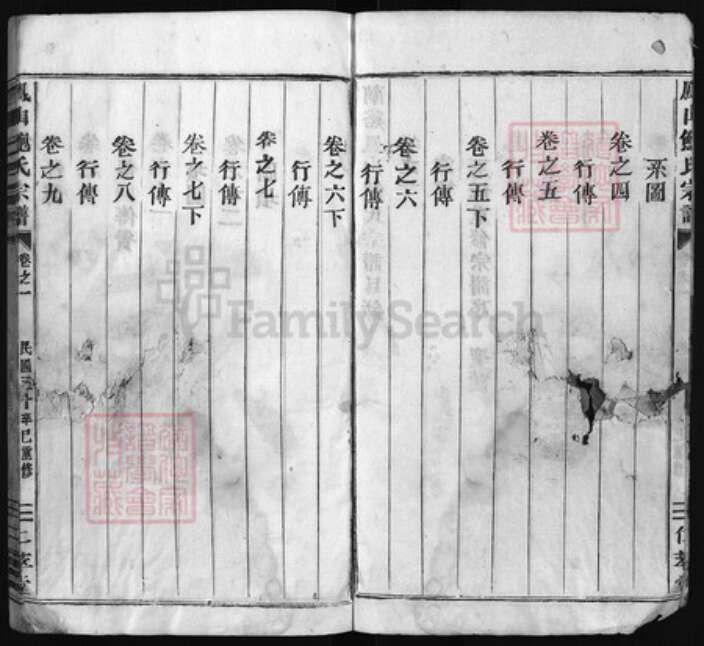 系圖
卷之四
行傳
卷之五
行傳
卷之五下
行傳
卷之六
行傳
卷之六下
行傳
卷之七
行傳
卷之七下
行傳
卷之八
行傳
卷之九
鳳山鮑氏宗譜
卷之一
民國三十辛巳重修
FamilySearch